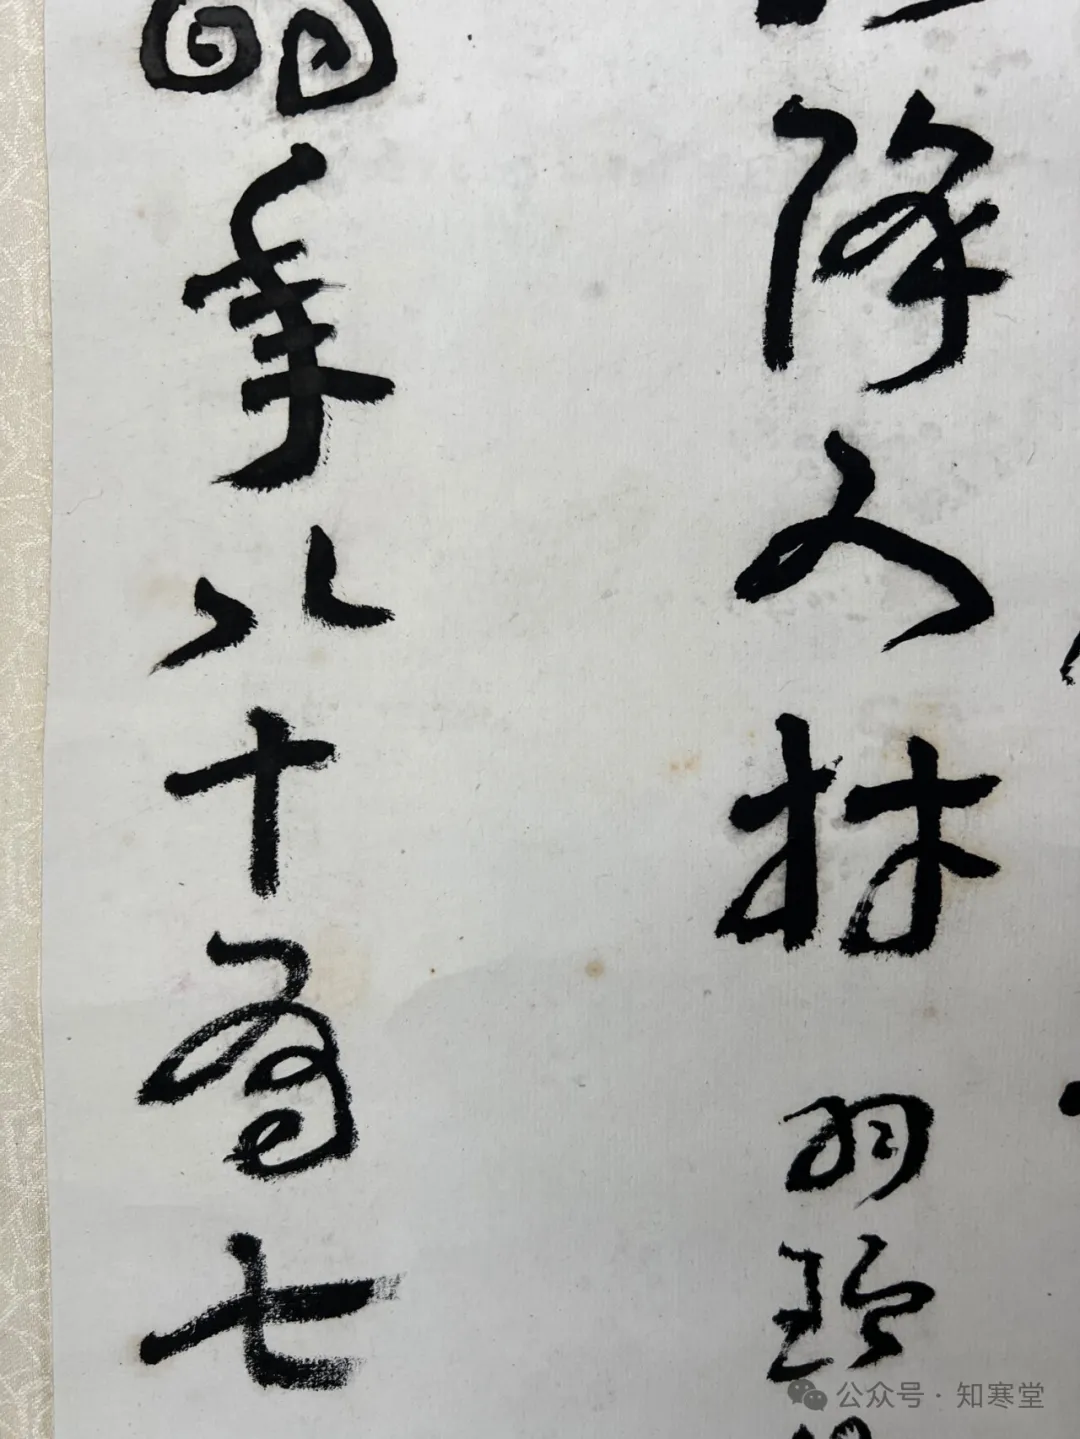 降人材 羽琌
年八十有七
公众号 · 知寒堂